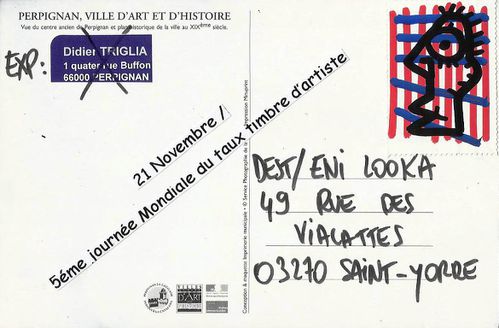 PERPIGNAN, VILLE D'ART ET D'HISTOIRE
Vue du centre ancien de Perpignan et plan historique de la ville au XIXème siècle.
EXP:
Didier TRIGLIA
1 quater rue Buffon
66000 PERPIGNAN
21 Novembre /
5éme journée Mondiale du faux timbre d'artiste
Conception & maquette Imprimerie municipale - © Service Photographique de la Impression Minuprint
DEST/ ENI LOOKA
49 RUE DES
VIALATTES
03270 SAINT-YORRE
D'ART